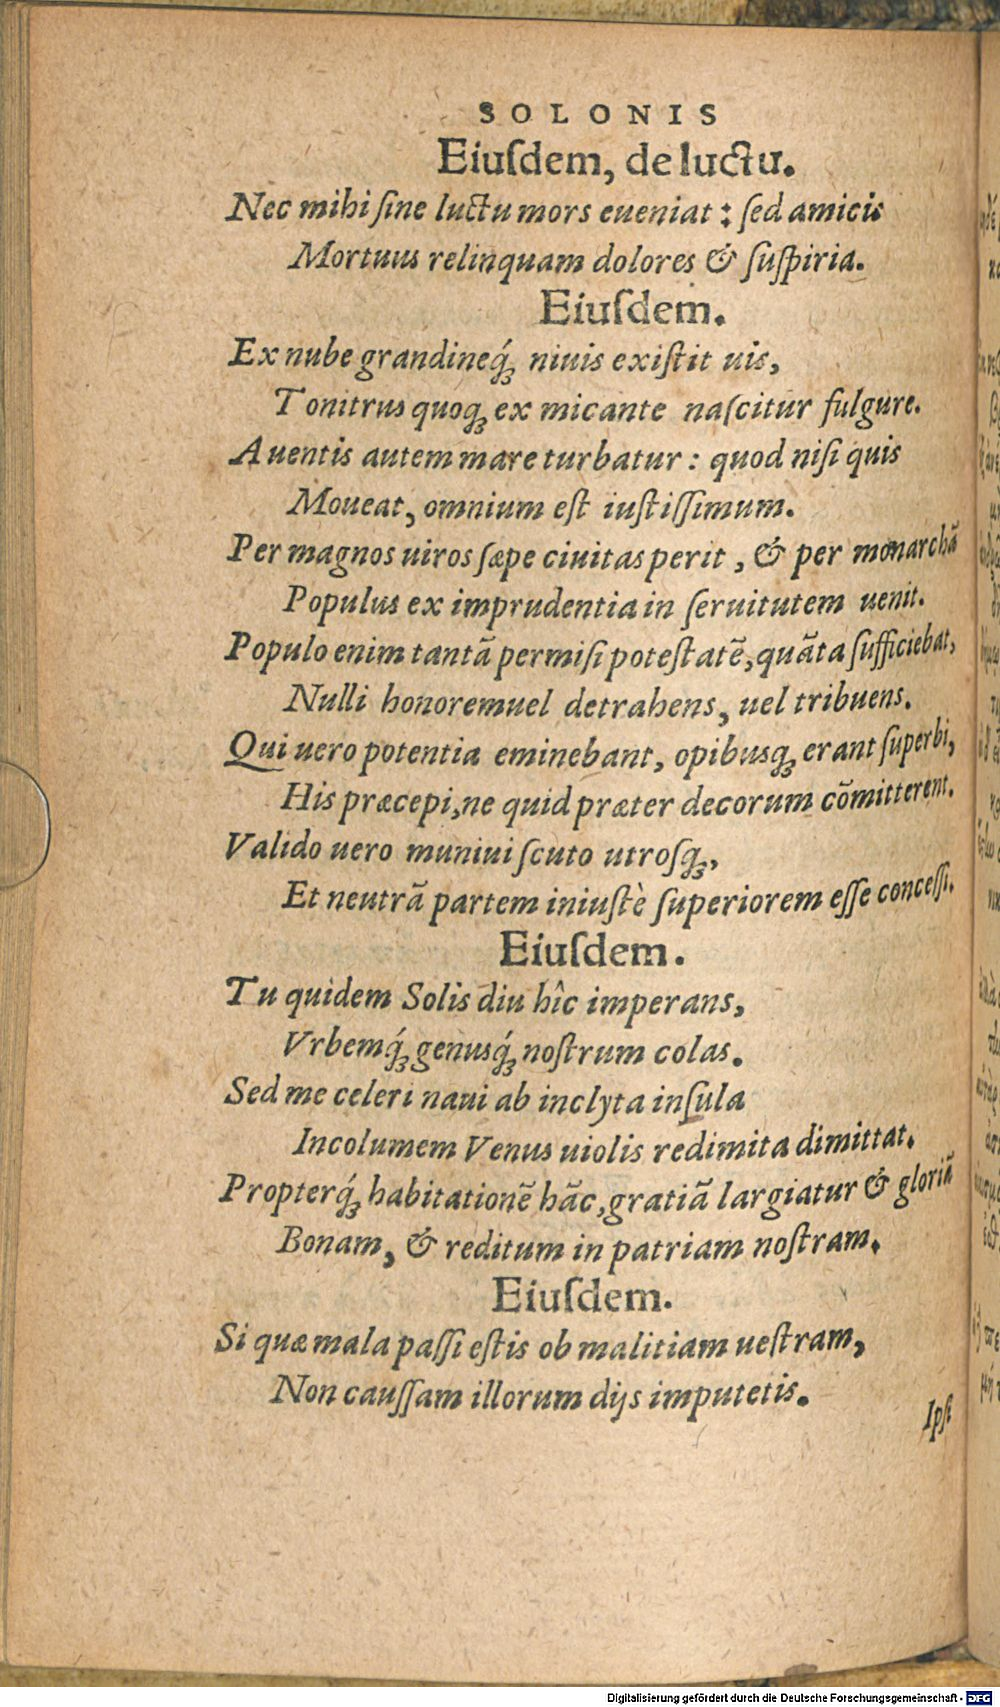 SOLONIS
Eiuſdem, de luctu.
Nec mihi ſine luctu mors eueniat : ſed amicis
Mortuus relinquam dolores & ſuſpiria.
Eiuſdem.
Ex nube grandineq́; niuis exiſtit uis,
Tonitrus quoq; ex micante naſcitur fulgure.
A uentis autem mare turbatur : quod niſi quis
Moueat, omnium eſt iuſtiſſimum.
Per magnos uiros ſæpe ciuitas perit, & per monarchã
Populus ex imprudentia in ſeruitutem uenit.
Populo enim tantã permiſi poteſtatẽ, quãta ſufficiebat,
Nulli honorem uel detrahens, uel tribuens.
Qui uero potentia eminebant, opibusq; erant ſuperbi,
His præcepi, ne quid præter decorum cõmitterent.
Valido uero muniui ſcuto utroſq;,
Et neutrã partem iniuſtè ſuperiorem eſſe conceſſi.
Eiuſdem.
Tu quidem Solis diu hîc imperans,
Vrbemq́; genusq́; noſtrum colas.
Sed me celeri naui ab inclyta inſula
Incolumem Venus uiolis redimita dimittat.
Propterq́; habitationẽ hãc, gratiã largiatur & gloriã
Bonam, & reditum in patriam noſtram.
Eiuſdem.
Si quæ mala paſſi eſtis ob malitiam ueſtram,
Non cauſſam illorum dijs imputetis.
Ipſi
Digitalisierung gefördert durch die Deutsche Forschungsgemeinschaft - DFG